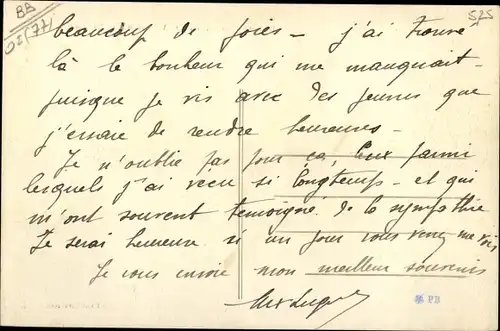 BB
525
beaucoup de joies – j'ai trouvé
là le bonheur qui me manquait –
puisque je vis avec des jeunes que
j'essaie de rendre heureuses –
Je n'oublie pas pour ça, ceux parmi
lesquels j'ai vécu si longtemps – et qui
m'ont souvent temoigné de la sympathie
Je serai heureuse si un jour vous venez me voir
Je vous envoie mon meilleur souvenir
PB